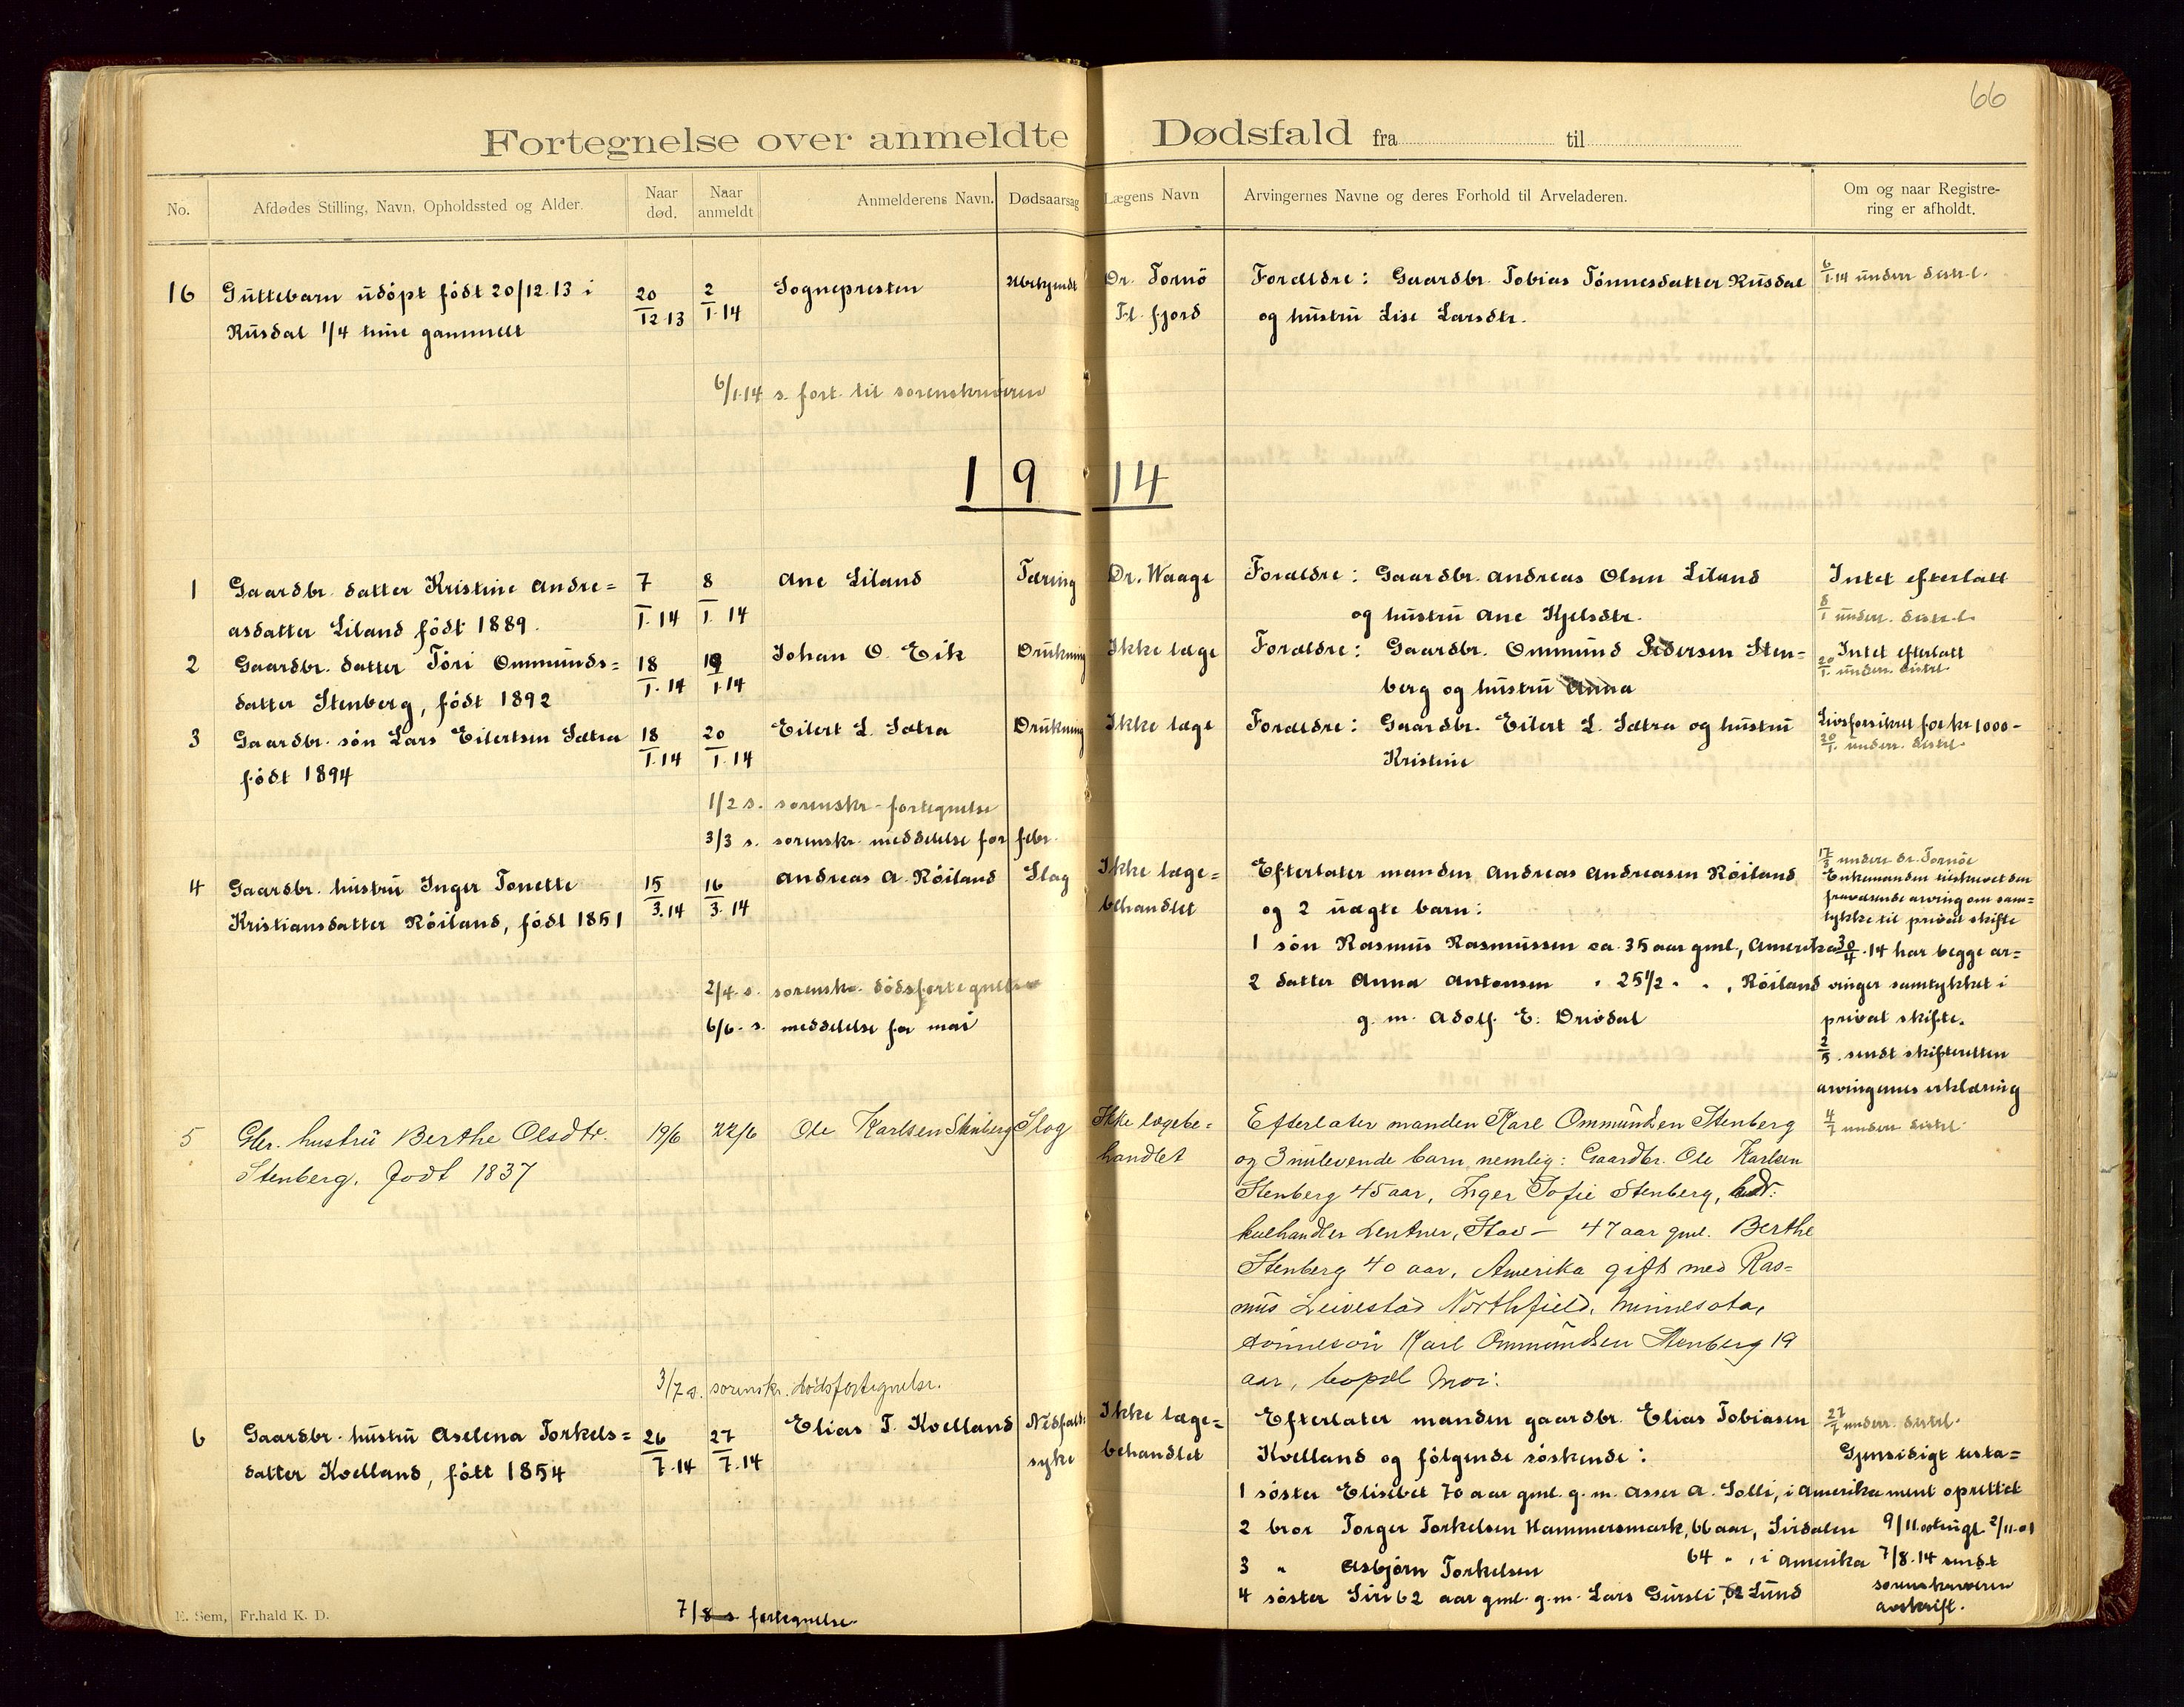 66
Fortegnelse over anmeldte Dødsfald fra til
No.
Afdødes Stilling, Navn, Opholdssted og Alder.
Naar død.
Naar anmeldt
Anmelderens Navn.
Dødsaarsag
Lægens Navn
Arvingernes Navne og deres Forhold til Arveladeren.
Om og naar Registre-
ring er afholdt.
16 Guttebarn udöpt födt 20/12.13 i
Rusdal 1/4 time gammelt
20/12.13
2/1.14
Sognepresten
Ubekjendt
Dr. Tornö
Fl. fjord
Foræeldre: Gaardbr. Tobias Tönnesdatter Rusdal
og hustru Lise Larsdtr.
6/1.14 underr. distr.l.
6/1.14 s. fort. til sorenskriveren
1914
1 Gaardbr. datter Kristine Andre=
asdatter Liland födt 1889.
7/1.14
8/1.14
Ane Liland
Tæring
Dr. Waage
Foræeldre: Gaardbr. Andreas Olsen Liland
og hustru Ane Kjelsdtr.
Intet efterlatt
8/1 underr. distr.l.
2 Gaardbr. datter Töri Ommunds=
datter Stenberg, födt 1892
18/1.14
19/1.14
Johan O. Eik
Drukning
Ikke læge
Foræeldre: Gaardbr. Ommund Pedersen Sten=
berg og hustru Anna
Intet efterlatt
20/1. underr. distr.l.
3 Gaardbr. sön Lars Eilertsen Sætra
födt 1894
18/1.14
20/1.14
Eilert L. Sætra
Drukning
Ikke læge
Foræeldre: Gaardbr. Eilert L. Sætra og hustru
Kristine
Livsforsikret for kr 1000-
20/1. underr. distr.l.
1/2 s. sorenskr. fortegnelse
3/3 s. sorenskr. meddelelse for febr.
4 Gaardbr. hustru Inger Tonette
Kristiansdatter Röiland, födt 1851
15/3.14
16/3.14
Andreas A. Röiland
Slag
Ikke læge=
behandlet
Efterlater manden Andreas Andreasen Röiland
og 2 uægte barn:
1 sön Rasmus Rasmussen ca. 35 aar gml., Amerika
2 datter Anna Antonsen " 25 1/2 " " , Röiland
g. m. Adolf E. Drivdal
17/3 underr dr. Tornöe
Enkemanden tilskrevet den
fraværende arving om sam=
tykke til privat skifte
30/4.14 har begge ar=
vinger samtykket i
privat skifte.
2/5. sendt skifteretten
arvingernes erklæring
2/4. s. sorenskr. dödsfortegnelse
6/6. s. meddelelse for mai
5 Gbr. hustru Berthe Olsdtr.
Stenberg. Födt 1837
19/6
22/6
Ole Karlsen Stenberg
Slag
Ikke lægebe=
handlet
Efterlater manden Karl Ommundsen Stenberg
og 3 nulevende barn, nemlig: Gaardbr. Ole Karlsen
Stenberg 45 aar, Inger Sofie Stenberg,
kulhandler Stav — 47 aar gml. Berthe
Stenberg 40 aar, Amerika gift med Ras=
mus Leivestad Northfield, Minnesota,
sönnesön Karl Ommundsen Stenberg 19
aar, bopæl Moi.
4/7 underr distr.l.
3/7 s. sorenskr. dödsfortegnelse.
6 Gaardbr. hustru Aselena Torkels=
datter Kvelland, fött 1854
26/7.14
27/7.14
Elias T. Kvelland
Nedfalds=
syke
Ikke læge=
behandlet
Efterlater manden gaardbr. Elias Tobiasen
Kvelland og fölgende söskende:
1 söster Elisebet 70 aar gml. g. m. Asser A. Solli, i Amerika
2 bror Torger Torkelsen Hammersmark, 66 aar, Sirdalen
3 " Asbjørn Torkelsen 64 " , i Amerika
4 söster Siri 62 aar gml. g. m. Lars Gursli, Lund
27/7 underr. distr.l.
Gjensidigt testa=
ment oprettet
9/11.00 tingl 2/11.01
7/8.14 sendt
sorenskriveren
avskrift.
7/8 s fortegnelse.
E. Sem, Fr.hald K. D.